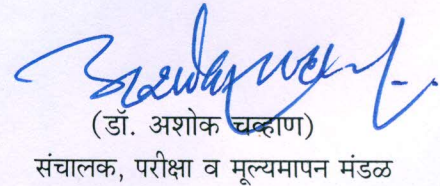 (डॉ. अशोक चव्हाण)
संचालक, परीक्षा व मूल्यमापन मंडळ